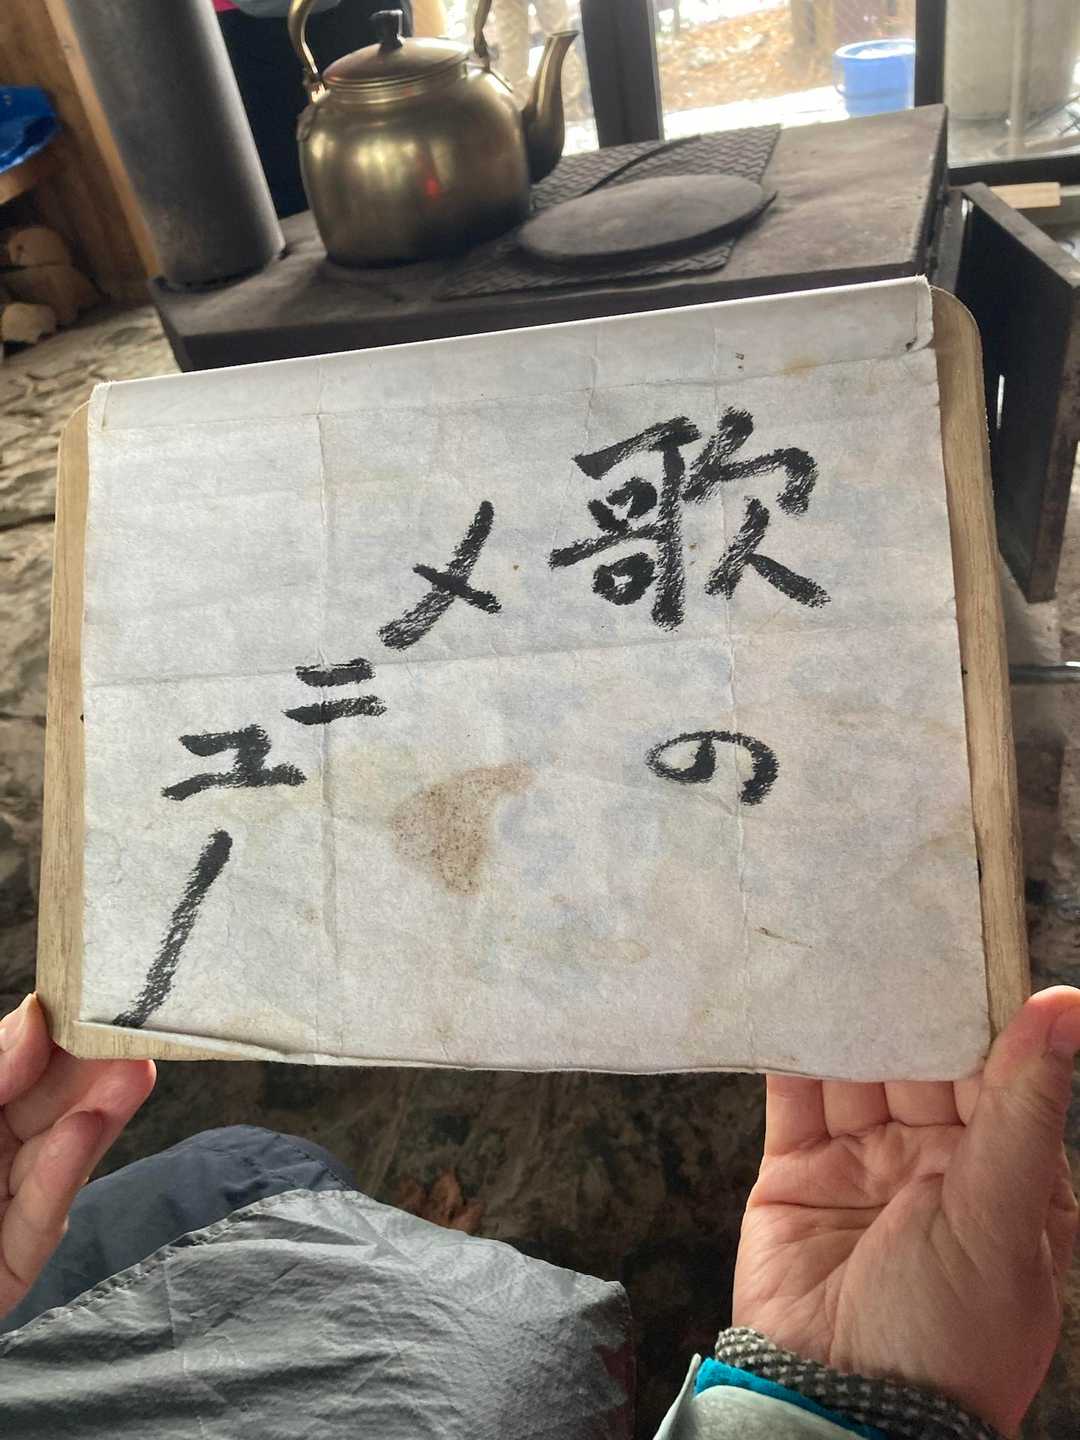 歌の
メニュー